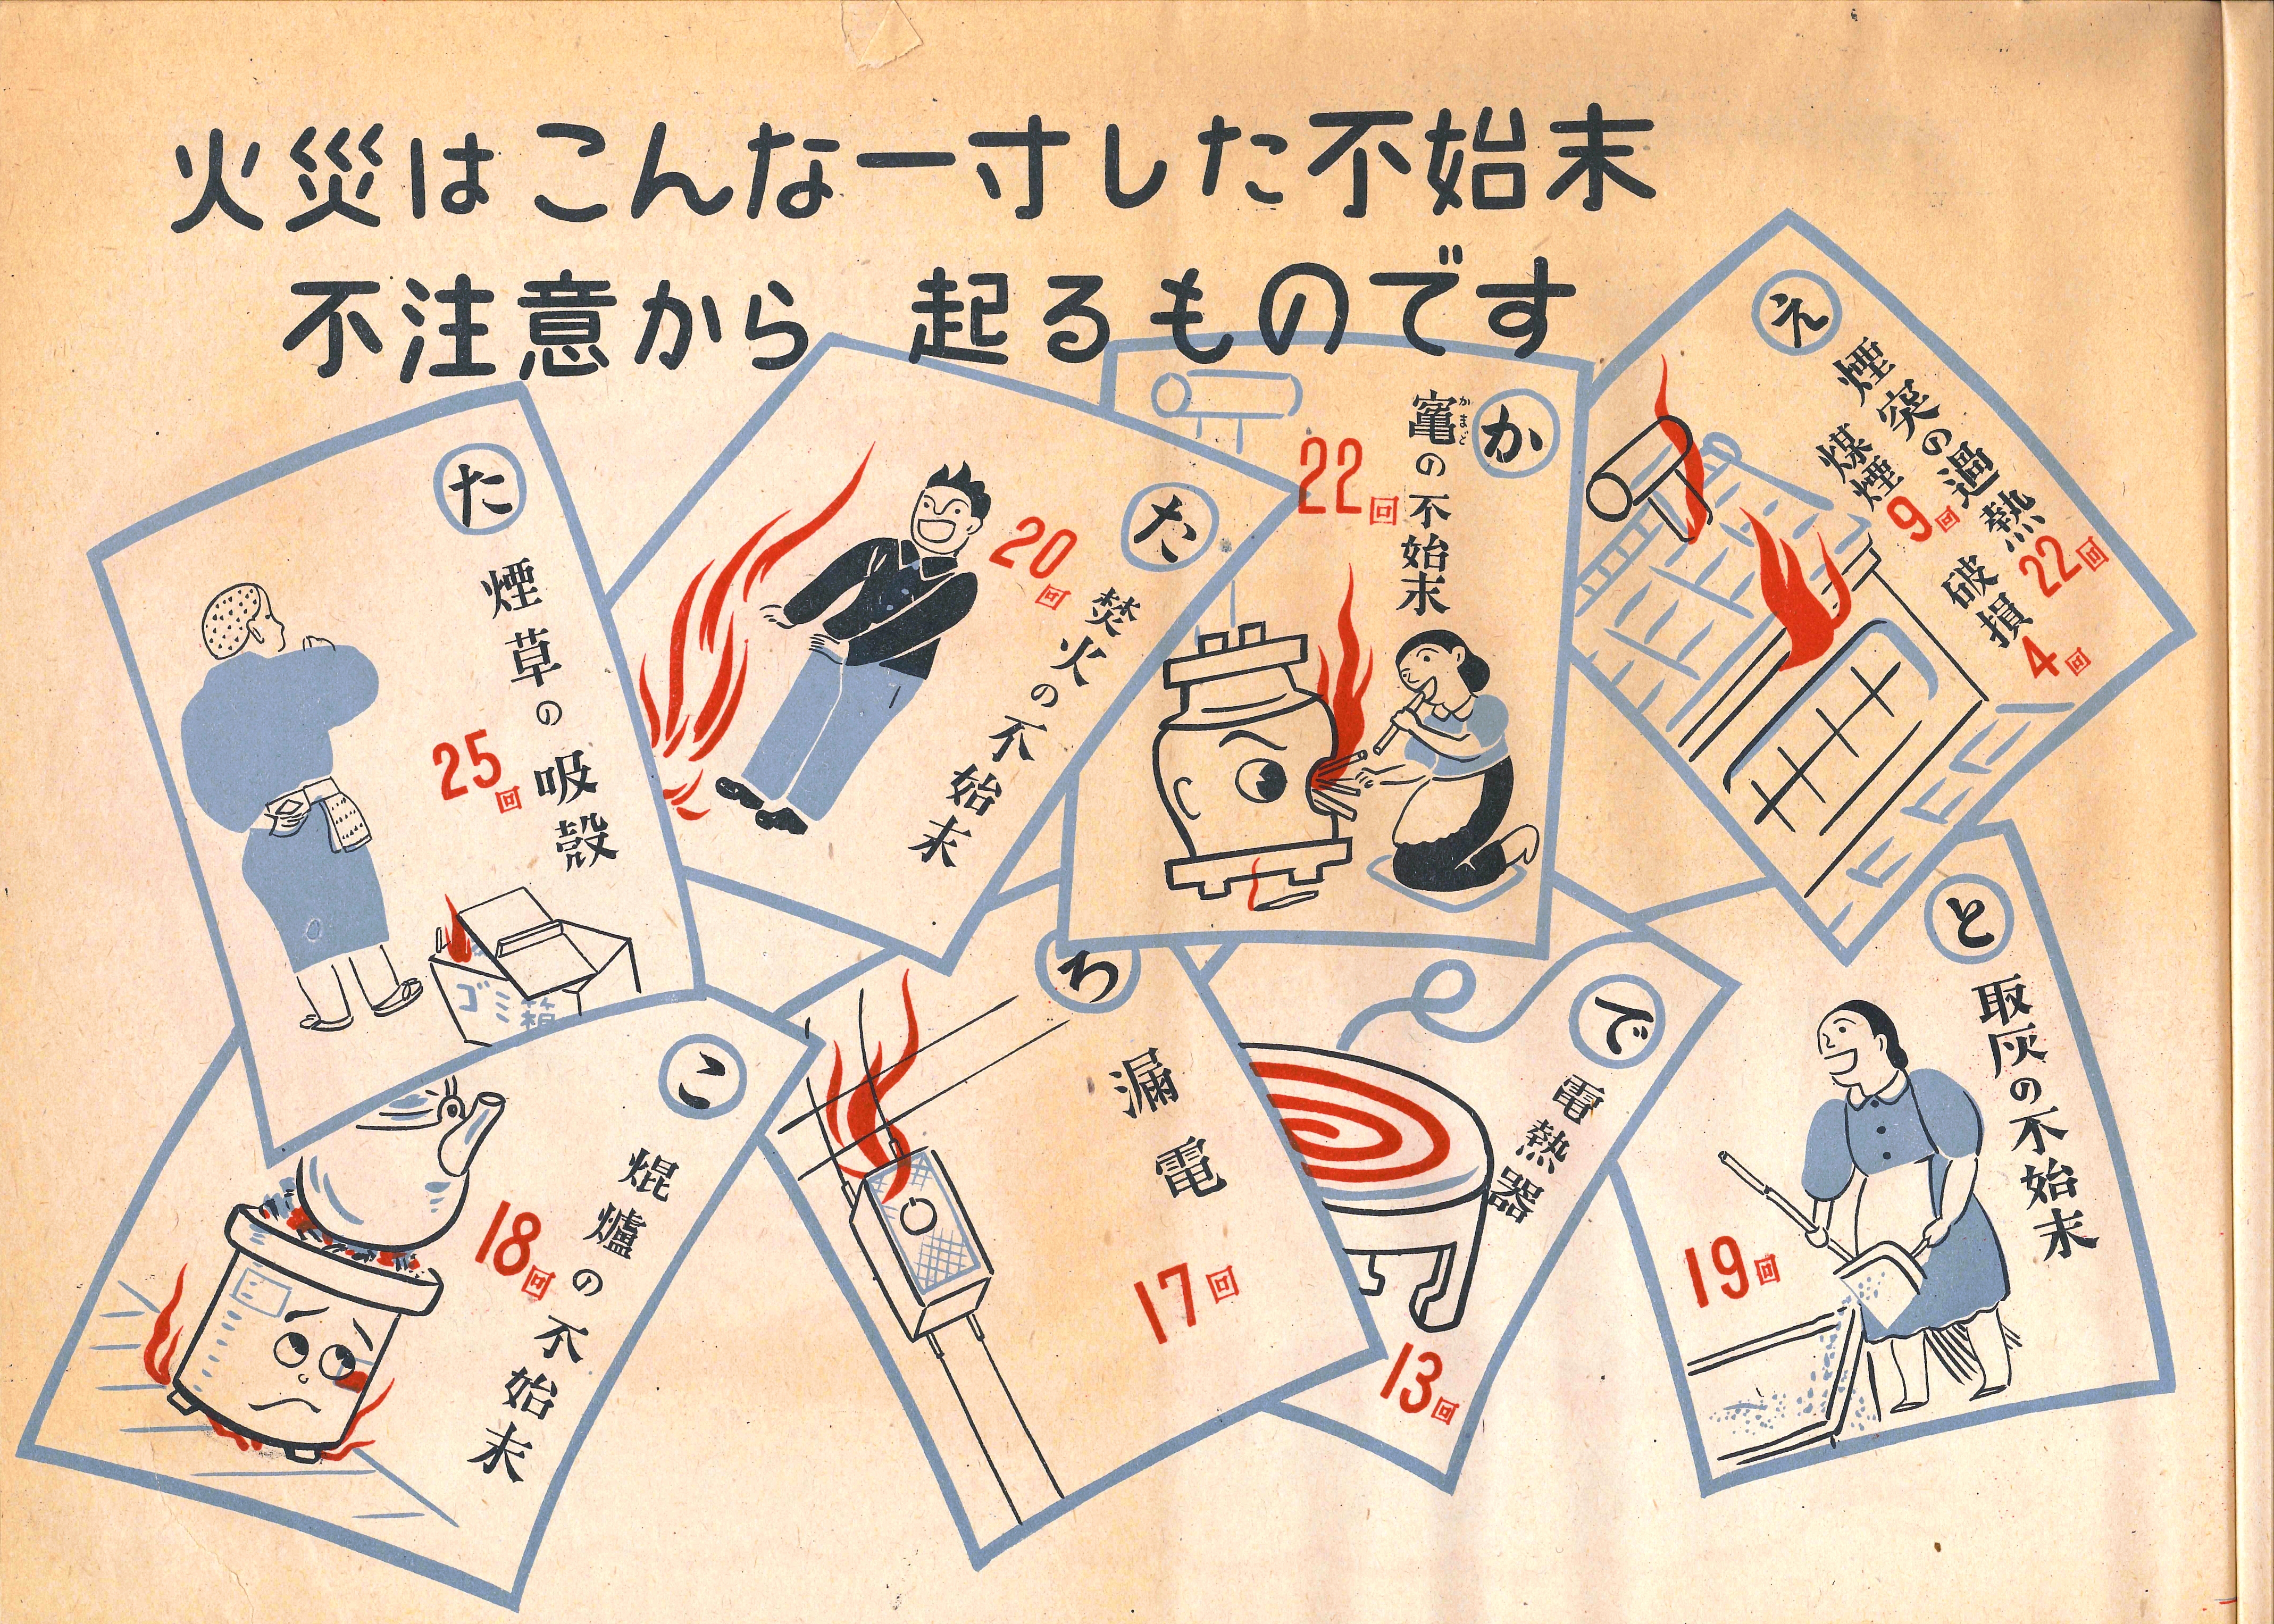 火災はこんな一寸した不始末
不注意から 起るものです
え
煙突の過熱 22回
煤煙 9回
破損 4回
か
竈の不始末
かまど
22回
た
焚火の不始末
20回
た
煙草の吸殻
25回
ゴミ箱
と
取灰の不始末
19回
で
電熱器
13回
ろ
漏電
17回
こ
焜爐の不始末
18回